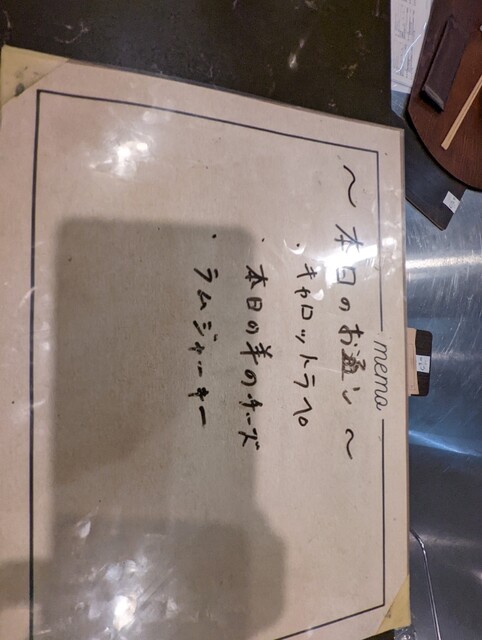 memo
～本日のお通し～
・キャロットラペ
・本日の羊のチーズ
・ラムジャーキー